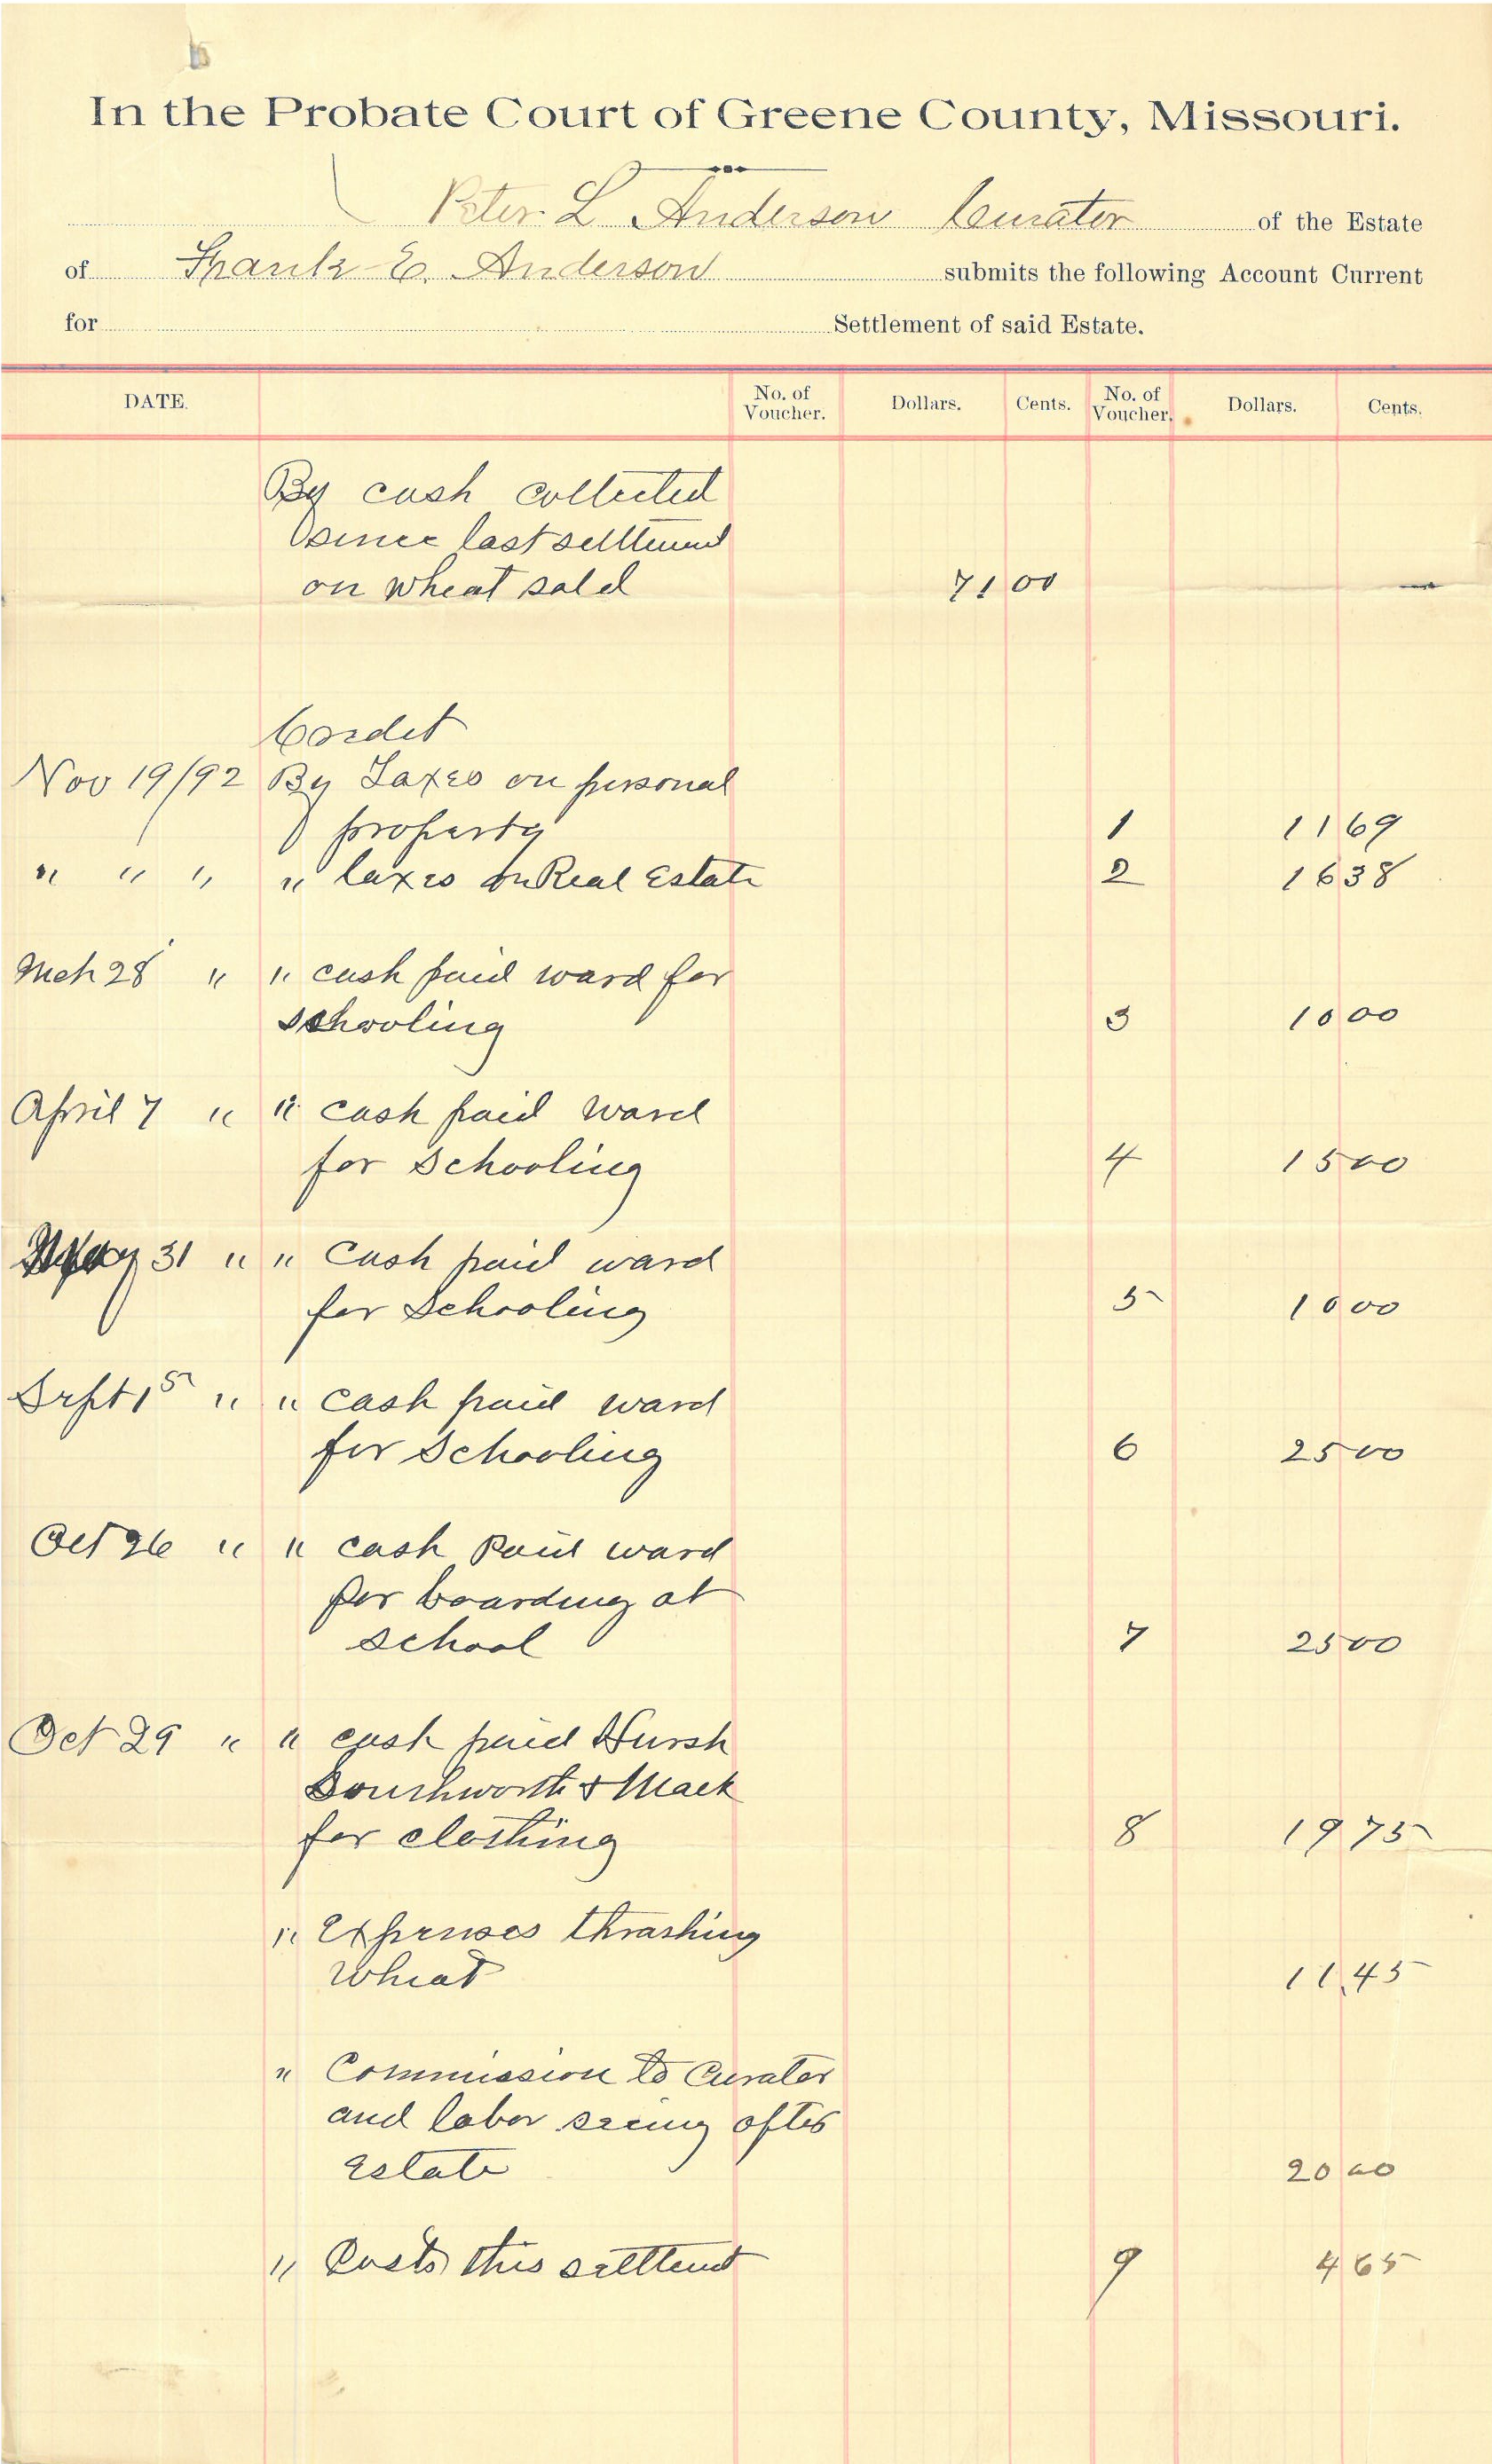 In the Probate Court of Greene County, Missouri.
Peter L Anderson Curator of the Estate
of Frank E. Anderson submits the following Account Current
for Settlement of said Estate.
DATE. No. of Voucher. Dollars. Cents. No. of Voucher. Dollars. Cents.
By cash collected
since last settlement
on wheat sold 71 00
Credet
Nov 19/92 By Taxes on personal
property 1 11 69
" " " " taxes on Real Estate 2 16 38
Mch 28 " " cash paid ward for
schooling 3 10 00
April 7 " " cash paid ward
for Schooling 4 15 00
May 31 " " Cash paid ward
for Schooling 5 10 00
Sept 15 " " cash paid ward
for Schooling 6 25 00
Oct 26 " " cash Paid ward
for boarding at
school 7 25 00
Oct 29 " " cash paid Hursh
Southworth & Mack
for clothing 8 19 75
" Expenses thrashing
wheat 11.45
" Commission to Curator
and labor seeing after
Estate 20 00
" Costs this settlemt 9 4 65